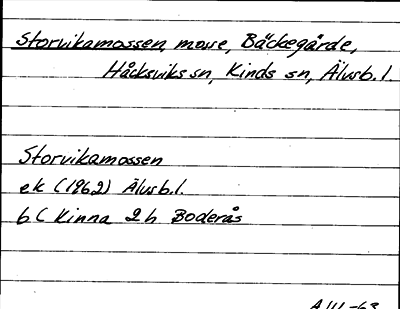 Storvikamossen, mosse, Bäckegårde,
Håcksviks sn, Kinds sn, Älvsb. l.
Storvikamossen
ek (1962) Älvsb. l.
b ( Kinna 2 h Boderås